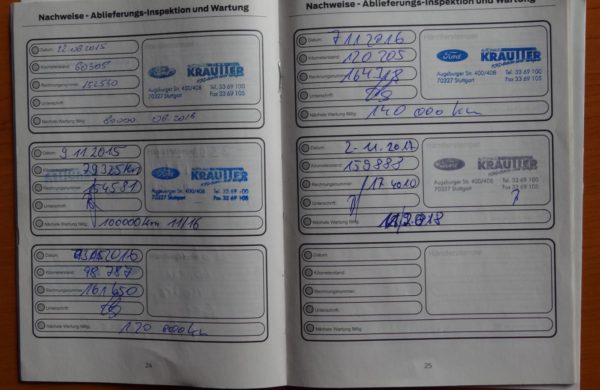 Nachweise - Ablieferungs-Inspektion und Wartung
Datum: 12.08.2015
Kilometerstand: 60305
Rechnungsnummer: 152530
Unterschrift:
Nächste Wartung fällig: 80000 08.2016
Ford
KRAUTTER
Augsburger Str. 400/408 Tel. 33 69 100
70327 Stuttgart Fax 33 69 105
Datum: 9 11.2015
Kilometerstand: 79325 km
Rechnungsnummer: 154581
Unterschrift:
Nächste Wartung fällig: 100000km 11/16
Ford
KRAUTTER
Augsburger Str. 400/408 Tel. 33 69 100
70327 Stuttgart Fax 33 69 105
Datum: 2016
Kilometerstand: 98.787
Rechnungsnummer: 161450
Unterschrift:
Nächste Wartung fällig: 120 000km
24
Nachweise - Ablieferungs-Inspektion und Wartung
Datum: 7 11.2016
Kilometerstand: 120 205
Rechnungsnummer: 164318
Unterschrift:
Nächste Wartung fällig: 140 000 km
Ford
KRAUTTER
Augsburger Str. 400/408 Tel. 33 69 100
70327 Stuttgart Fax 33 69 105
Datum: 2-11.2017
Kilometerstand: 159888
Rechnungsnummer: 174010
Unterschrift:
Nächste Wartung fällig: 2018
Ford
KRAUTTER
Augsburger Str. 400/408 Tel. 33 69 100
70327 Stuttgart Fax 33 69 105
Datum:
Kilometerstand:
Rechnungsnummer:
Unterschrift:
Nächste Wartung fällig:
Händlerstempel
25